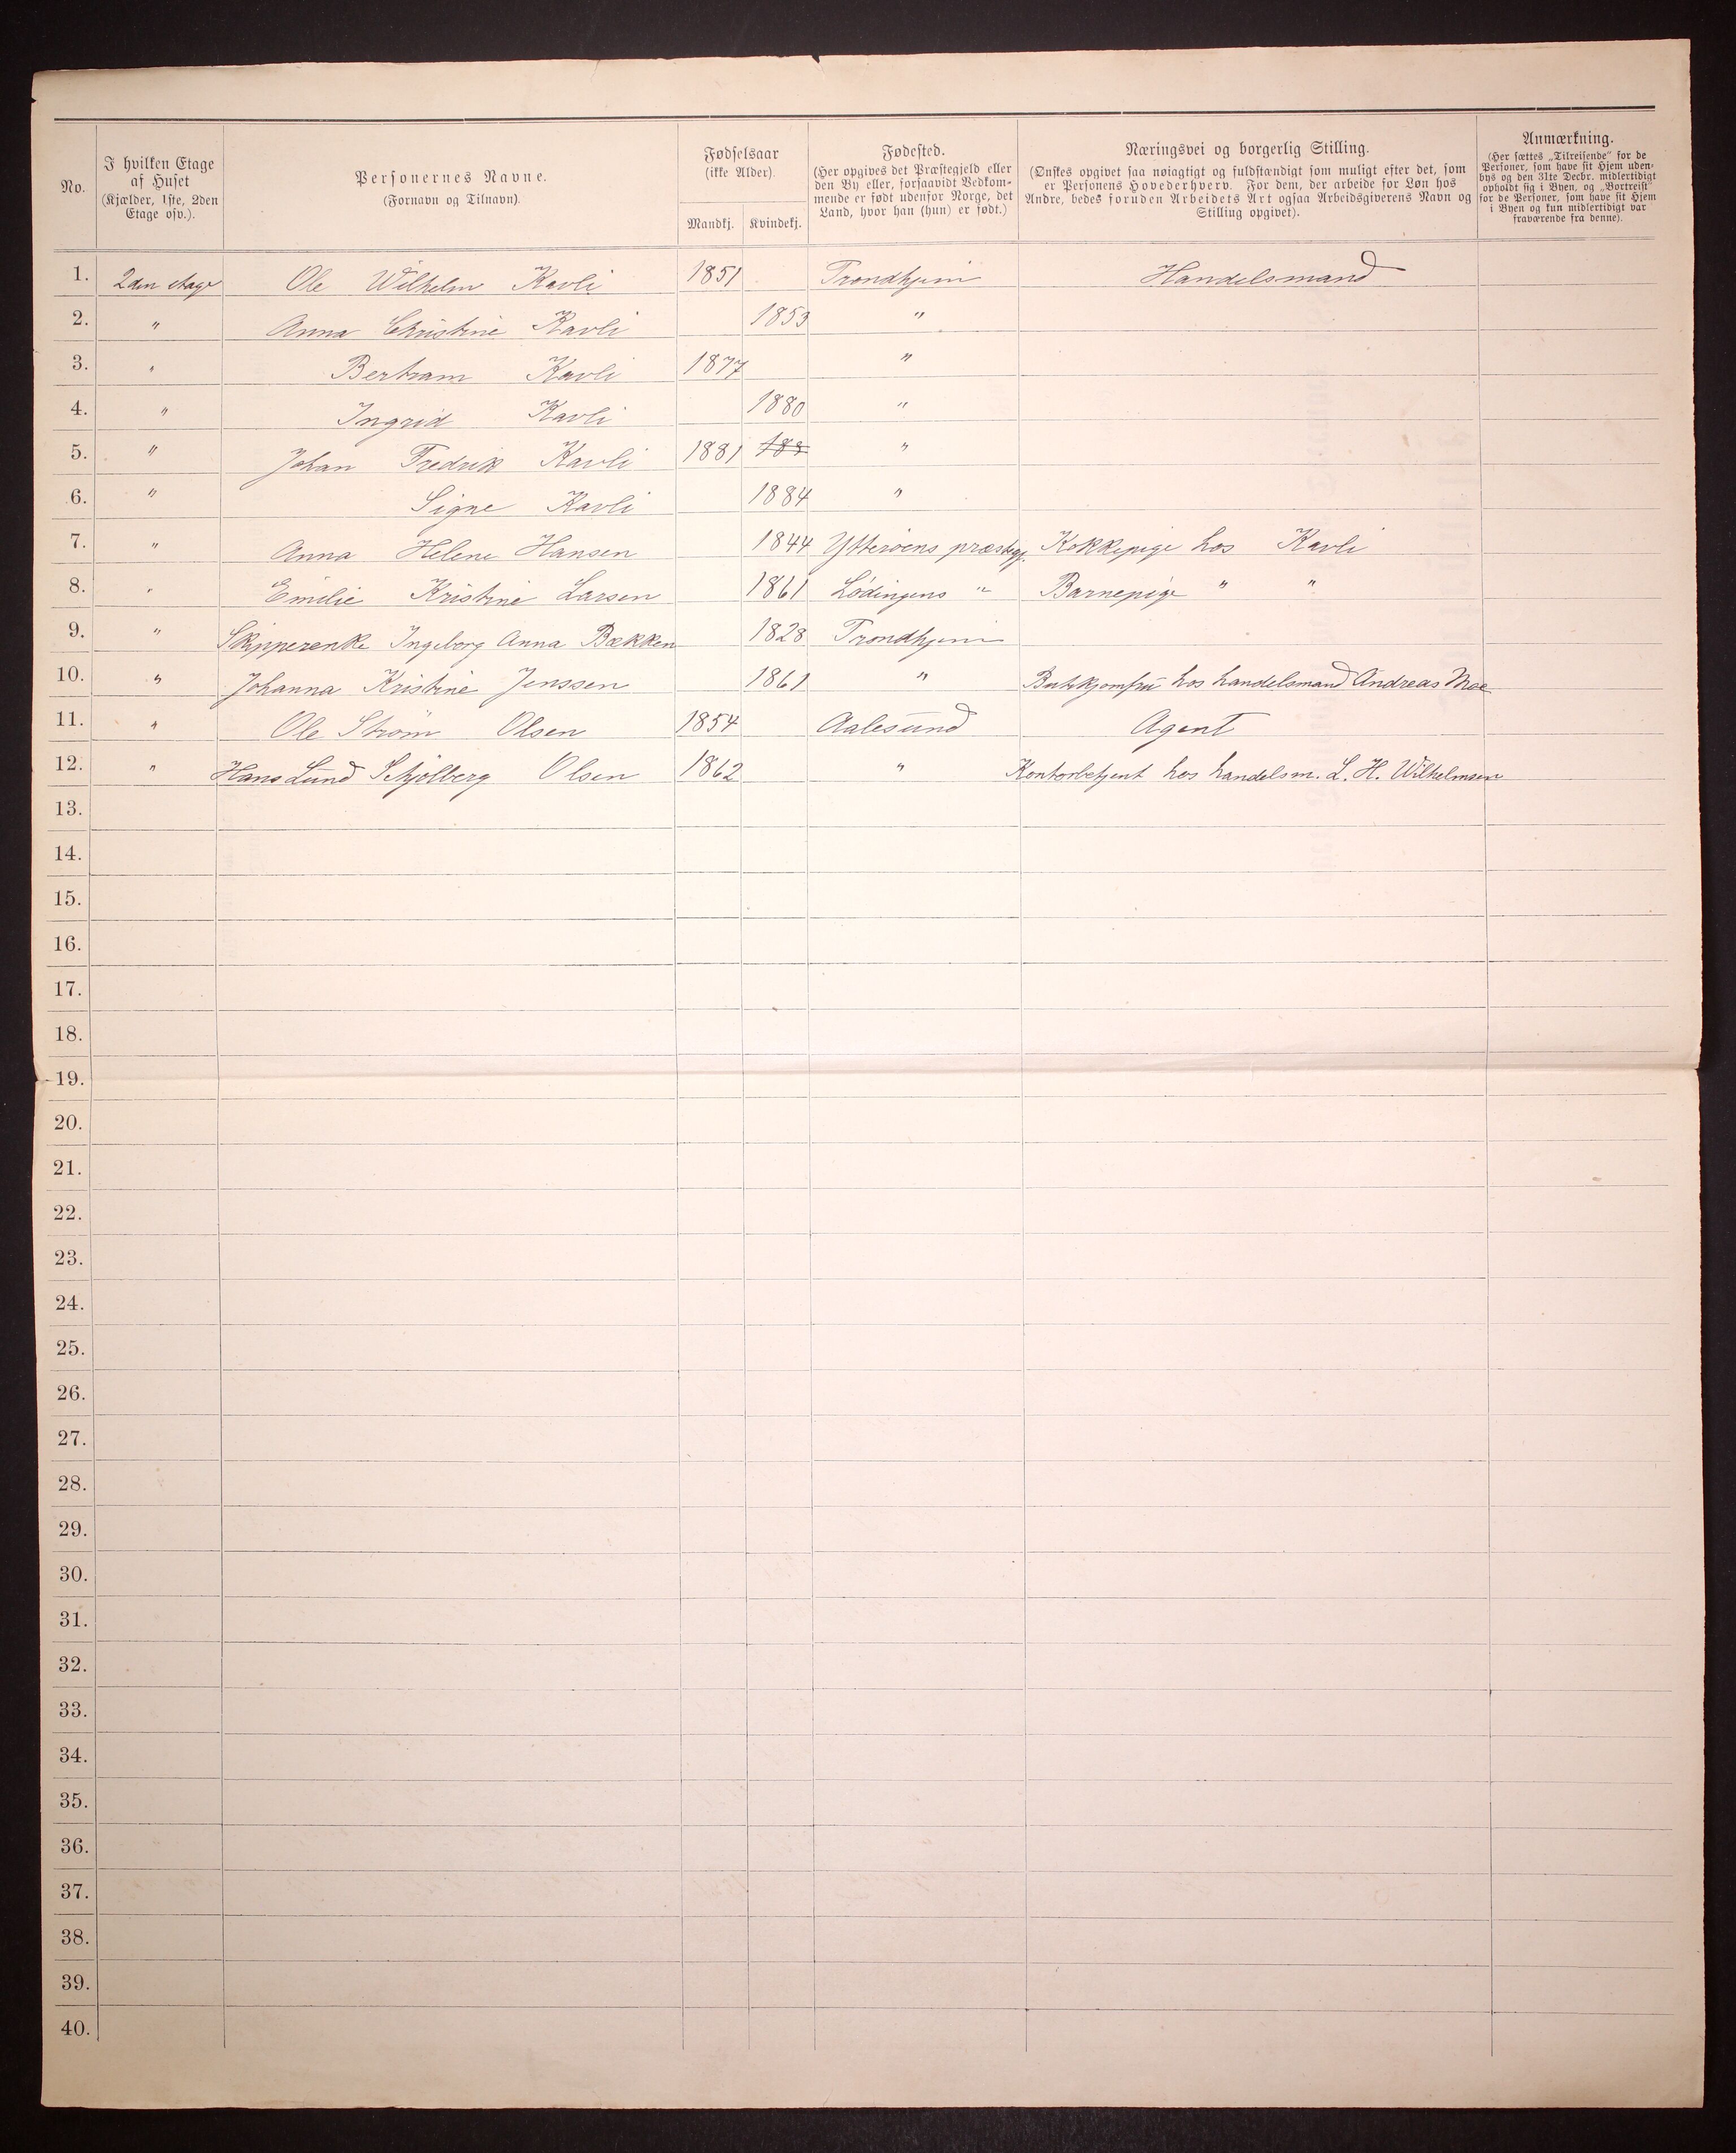 No.
I hvilken Etage
af Huset
(Kjælder, 1ste, 2den
Etage osv.).
Personernes Navne.
(Fornavn og Tilnavn).
Fødselsaar
(ikke Alder)
Mandkj. Kvindekj.
Fødested.
(Her opgives det Præstegjeld eller
den By eller, forsaavidt Vedkom-
mende er født udenfor Norge, det
Land, hvor han (hun) er født.)
Næringsvei og borgerlig Stilling.
(Ønskes opgivet saa nøiagtigt og fuldstændigt som muligt efter det, som
er Personens Hovederhverv. For dem, der arbeide for Løn hos
Andre, bedes foruden Arbeidets Art ogsaa Arbeidsgiverens Navn og
Stilling opgivet).
Anmærkning.
(Her sættes „Tilreisende“ for de
Personer, som have sit Hjem uden-
bys og den 31te Decbr. midlertidigt
opholdt sig i Byen, og „Bortreist“
for de Personer, som have sit Hjem
i Byen og kun midlertidigt var
fraværende fra denne).
1. 2den etage Ole Wilhelm Kavli 1851 Trondhjem Handelsmand
2. " Anna Christine Kavli 1853 "
3. " Bertram Kavli 1877 "
4. " Ingrid Kavli 1880 "
5. " Johan Fredrik Kavli 1881 188 "
6. " Signe Kavli 1884 "
7. " Anna Helene Hansen 1844 Ytterøens præstegj. Kokkepige hos Kavli
8. " Emilie Kristine Larsen 1861 Lødingens " Barnepige " "
9. " Skipperenke Ingeborg Anna Bækken 1828 Trondhjem
10. " Johanna Kristine Jenssen 1861 " Butikjomfru hos handelsmand Andreas Moe
11. " Ole Strøm Olsen 1854 Aalesund Agent
12. " Hans Lund Schjølberg Olsen 1862 " Kontorbetjent hos handelsm. L. H. Wilhelmsen
13.
14.
15.
16.
17.
18.
19.
20.
21.
22.
23.
24.
25.
26.
27.
28.
29.
30.
31.
32.
33.
34.
35.
36.
37.
38.
39.
40.